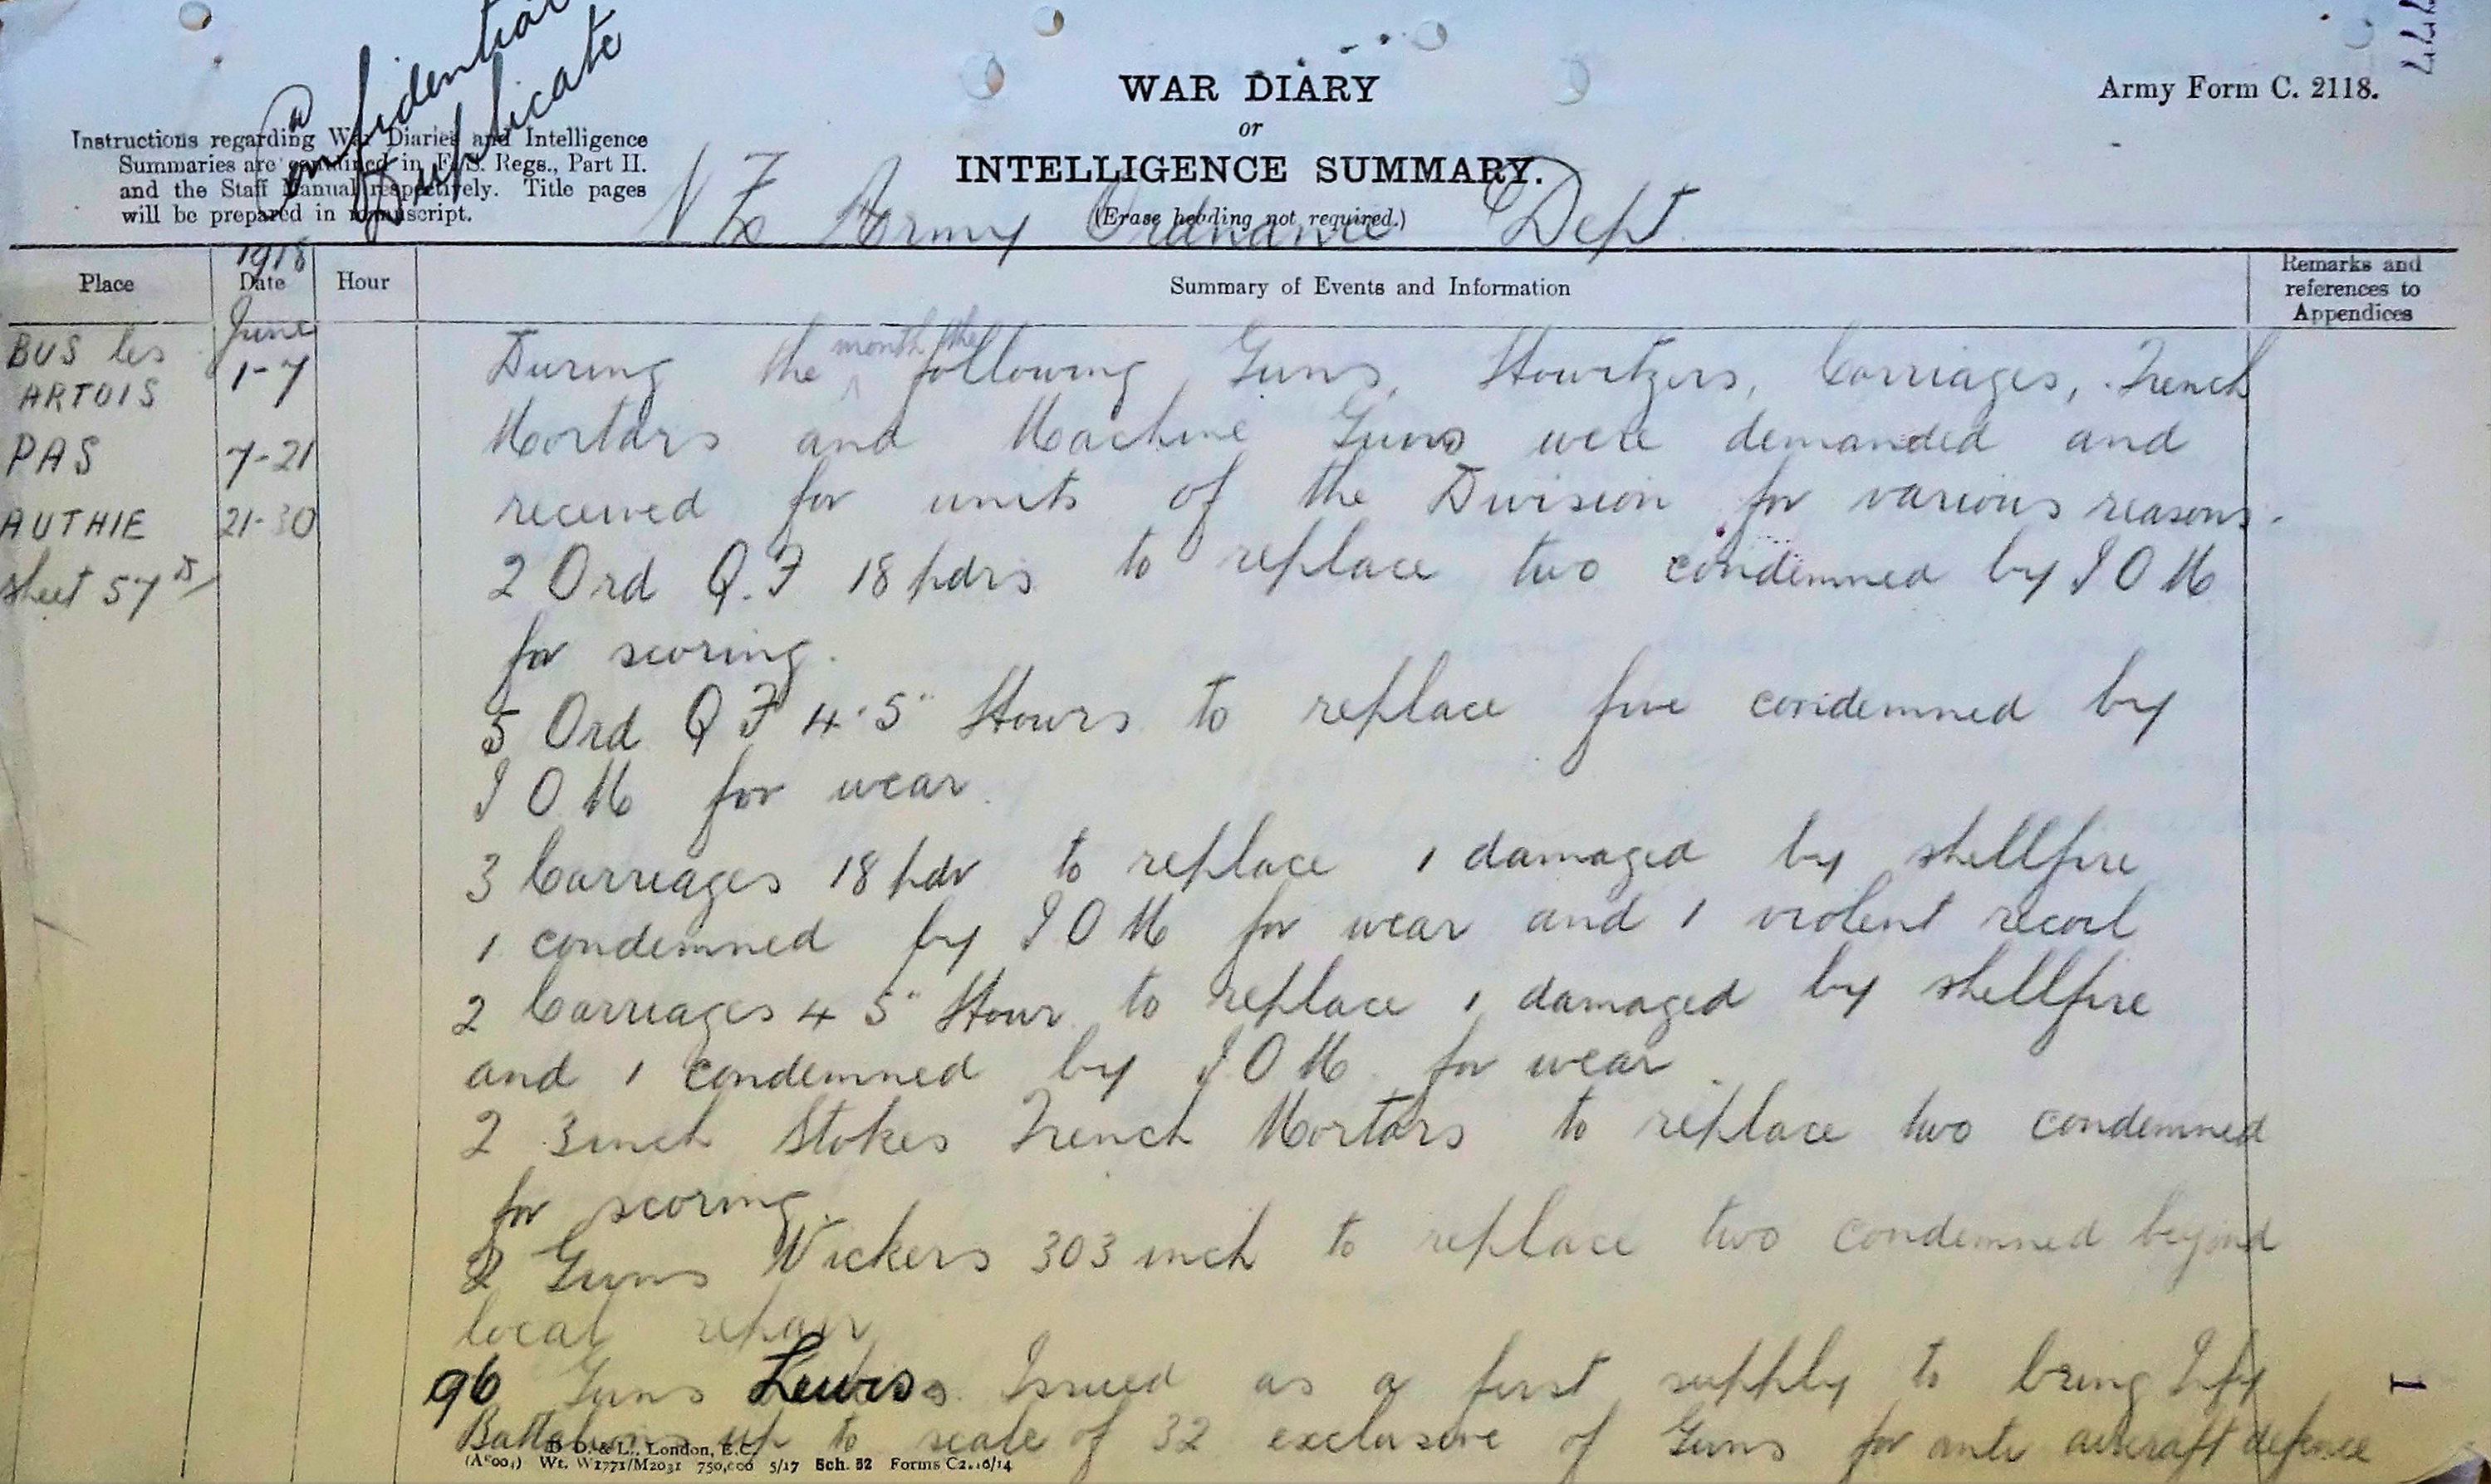 Confidential
Duplicate
WAR DIARY
or
INTELLIGENCE SUMMARY.
(Erase heading not required.)
Army Form C. 2118.
Instructions regarding War Diaries and Intelligence
Summaries are contained in F. S. Regs., Part II.
and the Staff Manual respectively. Title pages
will be prepared in manuscript.
N Z Army Ordnance Dept
Place
1918
Date
Hour
Summary of Events and Information
Remarks and
references to
Appendices
BUS les
ARTOIS
June
1-7
PAS 7-21
AUTHIE 21-30
Sheet 57D
During the month the following Guns, Howitzers, Carriages, Trench
Mortars and Machine Guns were demanded and
received for units of the Division for various reasons.
2 Ord Q.F 18 pdrs to replace two condemned by I O M
for scoring.
5 Ord Q F 4.5" Hows to replace five condemned by
I O M for wear.
3 Carriages 18 pdr to replace 1 damaged by shellfire
1 condemned by I O M for wear and 1 violent recoil
2 Carriages 4 5" How to replace 1 damaged by shellfire
and 1 condemned by I O M for wear.
2 3inch Stokes Trench Mortars to replace two condemned
for scoring.
2 Guns Vickers 303 inch to replace two condemned beyond
local repair
96 Guns Lewis. Issued as a first supply to bring Infy
Battalions up to scale of 32 exclusive of Guns for anti aircraft defence
D. D. & L., London, E.C.
Wt. W1771/M2031 750,000 5/17 Sch. 52 Forms C2118/14